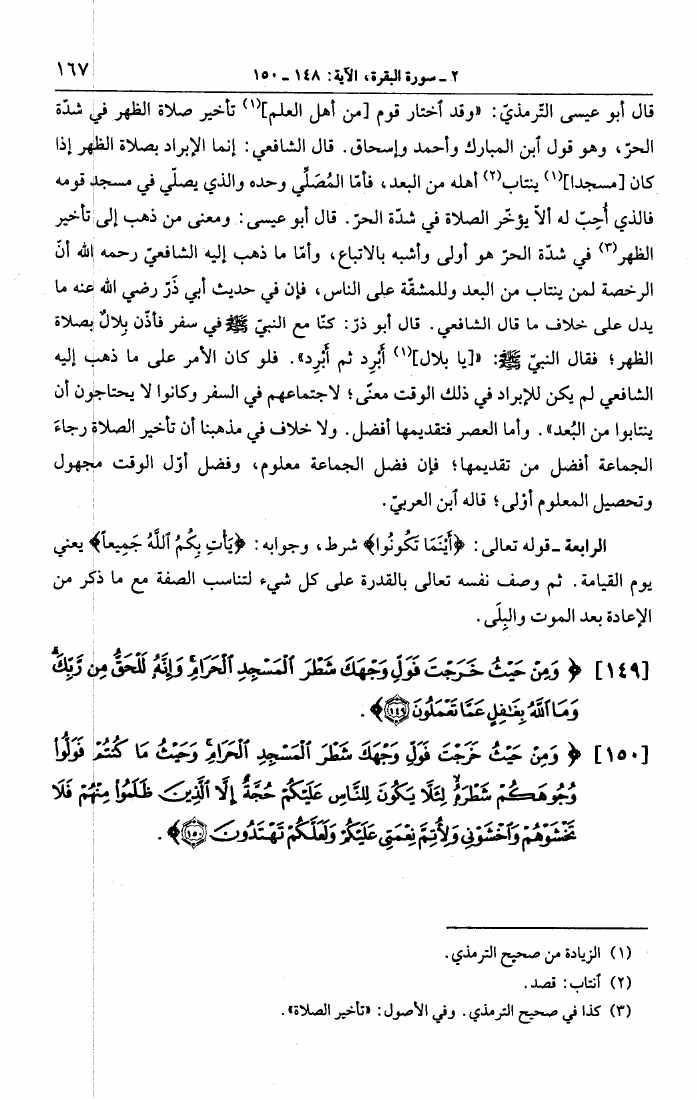 ٢ ـ سورة البقرة، الآية: ١٤٨ ـ ١٥٠
١٦٧
قال أبو عيسى التّرمذيّ: «وقد ٱختار قوم [من أهل العلم](١) تأخير صلاة الظهر في شدّة
الحرّ، وهو قول ٱبن المبارك وأحمد وإسحاق. قال الشافعي: إنما الإبراد بصلاة الظهر إذا
كان [مسجدا](١) ينتاب(٢) أهله من البعد، فأمّا المُصَلِّي وحده والذي يصلّي في مسجد قومه
فالذي أُحِبّ له ألاّ يؤخّر الصلاة في شدّة الحرّ. قال أبو عيسى: ومعنى من ذهب إلى تأخير
الظهر(٣) في شدّة الحرّ هو أولى وأشبه بالاتباع، وأمّا ما ذهب إليه الشافعيّ رحمه الله أنّ
الرخصة لمن ينتاب من البعد وللمشقّة على الناس، فإن في حديث أبي ذَرّ رضي الله عنه ما
يدل على خلاف ما قال الشافعي. قال أبو ذرّ: كنّا مع النبيّ ﷺ في سفر فأذّن بِلالٌ بصلاة
الظهر؛ فقال النبيّ ﷺ: «[يا بلال](١) أَبْرِد ثم أَبْرِد». فلو كان الأمر على ما ذهب إليه
الشافعي لم يكن للإبراد في ذلك الوقت معنًى؛ لاجتماعهم في السفر وكانوا لا يحتاجون أن
ينتابوا من البُعد». وأما العصر فتقديمها أفضل. ولا خلاف في مذهبنا أن تأخير الصلاة رجاءَ
الجماعة أفضل من تقديمها؛ فإن فضل الجماعة معلوم، وفضل أوّل الوقت مجهول
وتحصيل المعلوم أوْلى؛ قاله ٱبن العربيّ.
الرابعة ـ قوله تعالى: ﴿أَيْنَمَا تَكُونُوا﴾ شرط، وجوابه: ﴿يَأْتِ بِكُمُ ٱللَّهُ جَمِيعاً﴾ يعني
يوم القيامة. ثم وصف نفسه تعالى بالقدرة على كل شيء لتناسب الصفة مع ما ذكر من
الإعادة بعد الموت والبِلَى.
[١٤٩] ﴿ وَمِنْ حَيْثُ خَرَجْتَ فَوَلِّ وَجْهَكَ شَطْرَ ٱلْمَسْجِدِ ٱلْحَرَامِۖ وَإِنَّهُۥ لَلْحَقُّ مِن رَّبِّكَۗ
وَمَا ٱللَّهُ بِغَٰفِلٍ عَمَّا تَعْمَلُونَ ١٤٩﴾.
[١٥٠] ﴿ وَمِنْ حَيْثُ خَرَجْتَ فَوَلِّ وَجْهَكَ شَطْرَ ٱلْمَسْجِدِ ٱلْحَرَامِۚ وَحَيْثُ مَا كُنتُمْ فَوَلُّوا۟
وُجُوهَكُمْ شَطْرَهُۥ لِئَلَّا يَكُونَ لِلنَّاسِ عَلَيْكُمْ حُجَّةٌ إِلَّا ٱلَّذِينَ ظَلَمُوا۟ مِنْهُمْ فَلَا
تَخْشَوْهُمْ وَٱخْشَوْنِى وَلِأُتِمَّ نِعْمَتِى عَلَيْكُمْ وَلَعَلَّكُمْ تَهْتَدُونَ ١٥٠﴾.
(١) الزيادة من صحيح الترمذي.
(٢) ٱنتاب: قصد.
(٣) كذا في صحيح الترمذي. وفي الأصول: «تأخير الصلاة».